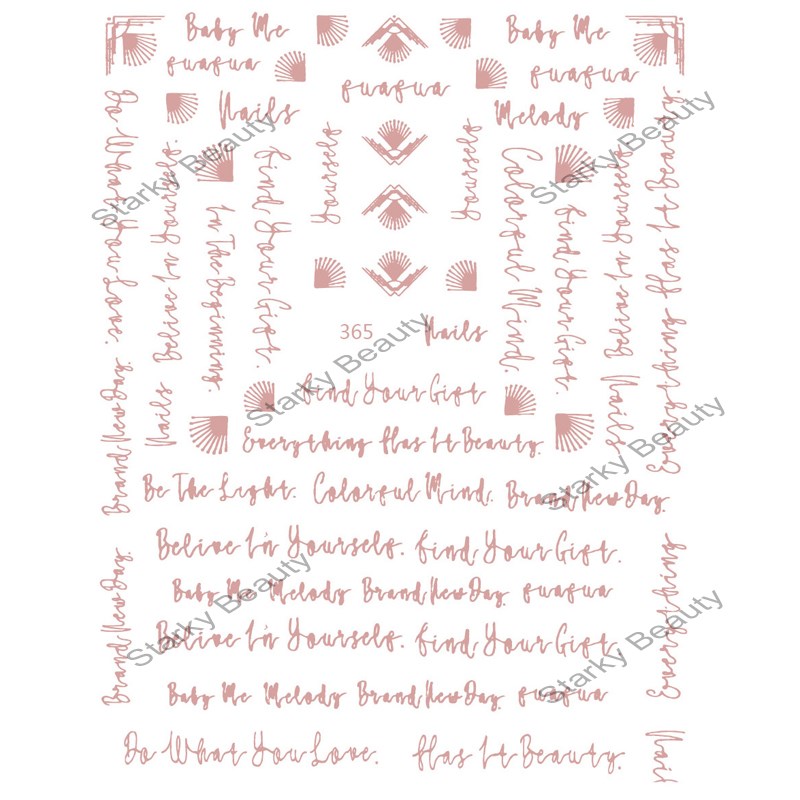 Baby Me
Baby Me
fuafua
fuafua
fuafua
Nails
Melody
Do What You Love.
Belive In Yourself.
In The Beginning.
Find Your Gift.
Yourself
Yourself
Colorful Mind.
Find Your Gift.
Belive In Yourself.
Everything Has It Beauty.
365
Nails
Brand New Day.
Nails
Nails
Find Your Gift
Everything Has It Beauty.
Be The Light. Colorful Mind. Brand New Day.
Belive In Yourself. Find Your Gift.
Brand New Day.
Everything
Baby Me Melody Brand New Day. fuafua
Belive In Yourself. Find Your Gift.
Baby Me Melody Brand New Day. fuafua
Do What You Love. Has It Beauty.
Nail
Starky Beauty
Starky Beauty
Starky Beauty
Starky Beauty
Starky Beauty
Starky Beauty